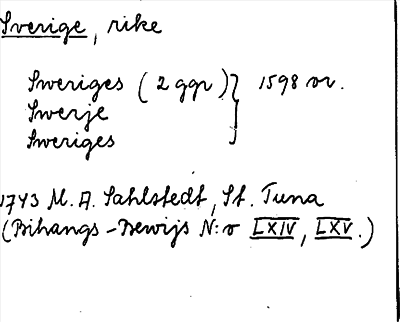 Sverige, rike
Sweriges (2 ggr) } 1598 or.
Swerje
Sweriges
1743 M. A. Sahlstedt, St. Tuna
(Bihangs-Bewijs N:o LXIV, LXV.)